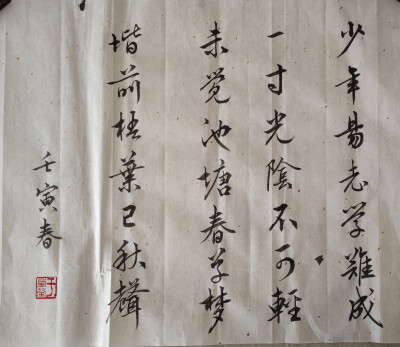 少年易老学難成
一寸光陰不可輕
未覺池塘春草梦
堦前梧葉已秋聲
壬寅春